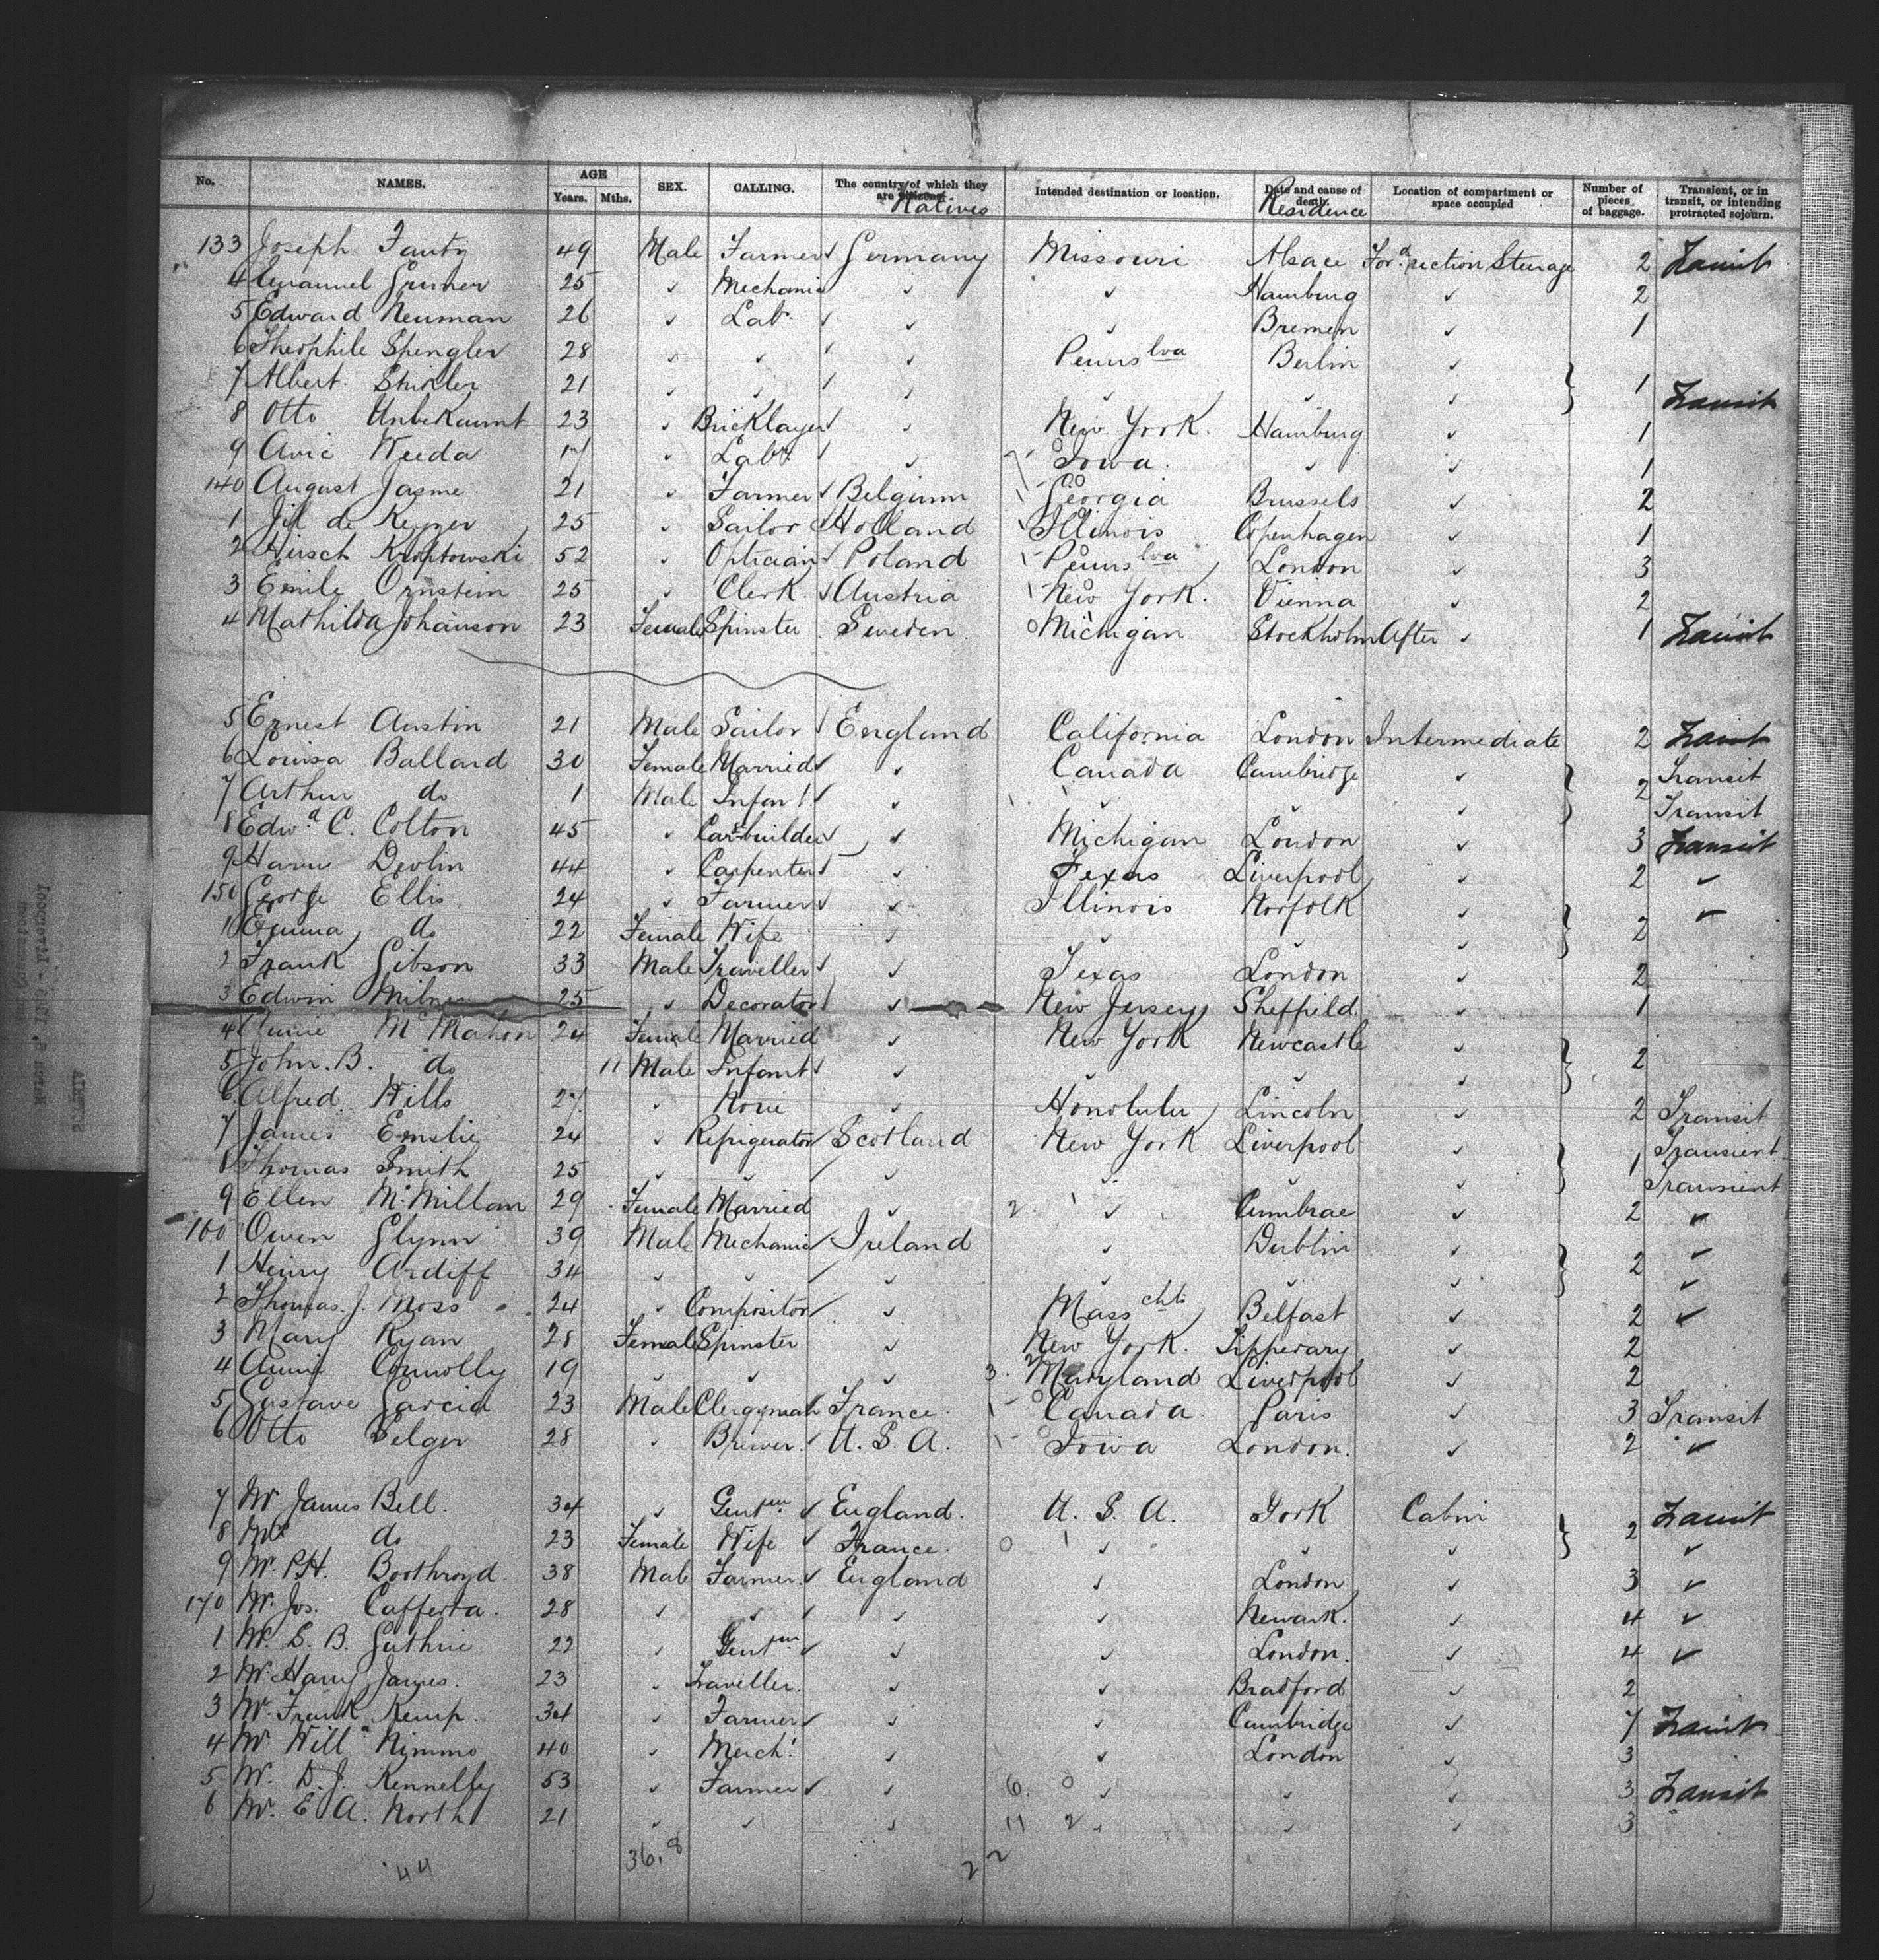 No. NAMES. AGE Years. Mths. SEX. CALLING. The country of which they are citizens. Natives Intended destination or location. Date and cause of death. Residence Location of compartment or space occupied Number of pieces of baggage. Transient, or in transit, or intending protracted sojourn.
133 Joseph Fautz 49 Male Farmer Germany Missouri Alsace For.d section Steerage 2 Transit
4 Emanuel 25 " Mechanic " " Hamburg " 2
5 Edward Neuman 26 " Labr " " Bremen " 1
6 Theophile Spengler 28 " " " Pennslva Berlin "
7 Albert 21 " " " " " " 1 Transit
8 Otto Unbekaunt 23 " Bricklayer " New York. Hamburg " 1
9 17 " Labr " Iowa. " " 1
140 August Jasme 21 " Farmer Belgium Georgia Brussels " 2
1 de Keyzer 25 " Sailor Holland Illinois Copenhagen " 1
2 Hirsch Kroptowski 52 " Optician Poland Pennslva London " 3
3 Emile Ornstein 25 " Clerk Austria New York. Vienna " 2
4 Mathilda Johanson 23 Female Spinster Sweden Michigan Stockholm After " 1 Transit
5 Ernest Austin 21 Male Sailor England California London Intermediate 2 Transit
6 Louisa Ballard 30 Female Married " Canada Cambridge " 2 Transit
7 Arthur do 1 Male Infant " " " " Transit
8 Edwd C. Colton 45 " Car-builder " Michigan London " 3 Transit
9 Devlin 44 " Carpenter " Texas Liverpool " 2 "
150 George Ellis 24 " Farmer " Illinois Norfolk " "
1 Emma do 22 Female Wife " " " " 2
2 Frank Gibson 33 Male Traveller " Texas London " 2
3 Edwin Milner 25 " Decorator " New Jersey Sheffild " 1
4 Annie McMahon 24 Female Married " New York Newcastle "
5 John. B. do 11 Male Infant " " " " 2
6 Alfred Wills 27 " None " Honolulu Lincoln " 2 Transit
7 James Emslie 24 " Refrigerator Scotland New York Liverpool " 1 Transient
8 Thomas Smith 25 " " " " " " Transient
9 Ellen McMillan 29 Female Married " " Cumbrae " 2 "
160 Owen Glynn 39 Male Mechanic Ireland " Dublin " "
1 Henry Ardiff 34 " " " " " " 2 "
2 Thomas. J. Moss 24 " Compositor " Masschts Belfast " 2 "
3 Mary Ryan 28 Female Spinster " New York. Tipperary " 2
4 Annie Connolly 19 " " " Maryland Liverpool " 2
5 Gustave Garcia 23 Male Clergyman France Canada Paris " 3 Transit
6 Otto Selger 28 " Brewer. U. S. A. Iowa London. " 2 "
7 Mr. James Bell. 34 " Gentmn England. U. S. A. York Cabin Transit
8 Mrs do 23 Female Wife France. " " " 2 "
9 Mr. P.H. Boothroyd 38 Male Farmer England " London " 3 "
170 Mr. Jos. Cafferta. 28 " " " " Newark. " 4 "
1 Mr. S. B. Guthrie 22 " Gentmn " " London. " 4 "
2 Mr. Harry James. 23 " Traveller. " " Bradford " 2
3 Mr. Frank Kemp. 34 " Farmer " " Cambridge " 7 Transit
4 Mr. Willm Nimmo 40 " Mercht " " London " 3
5 Mr. D. J. Kennelly 53 " Farmer " " " " 3 Transit
6 Mr. E. A. North 21 " " " " " " 3
44 36.8 22